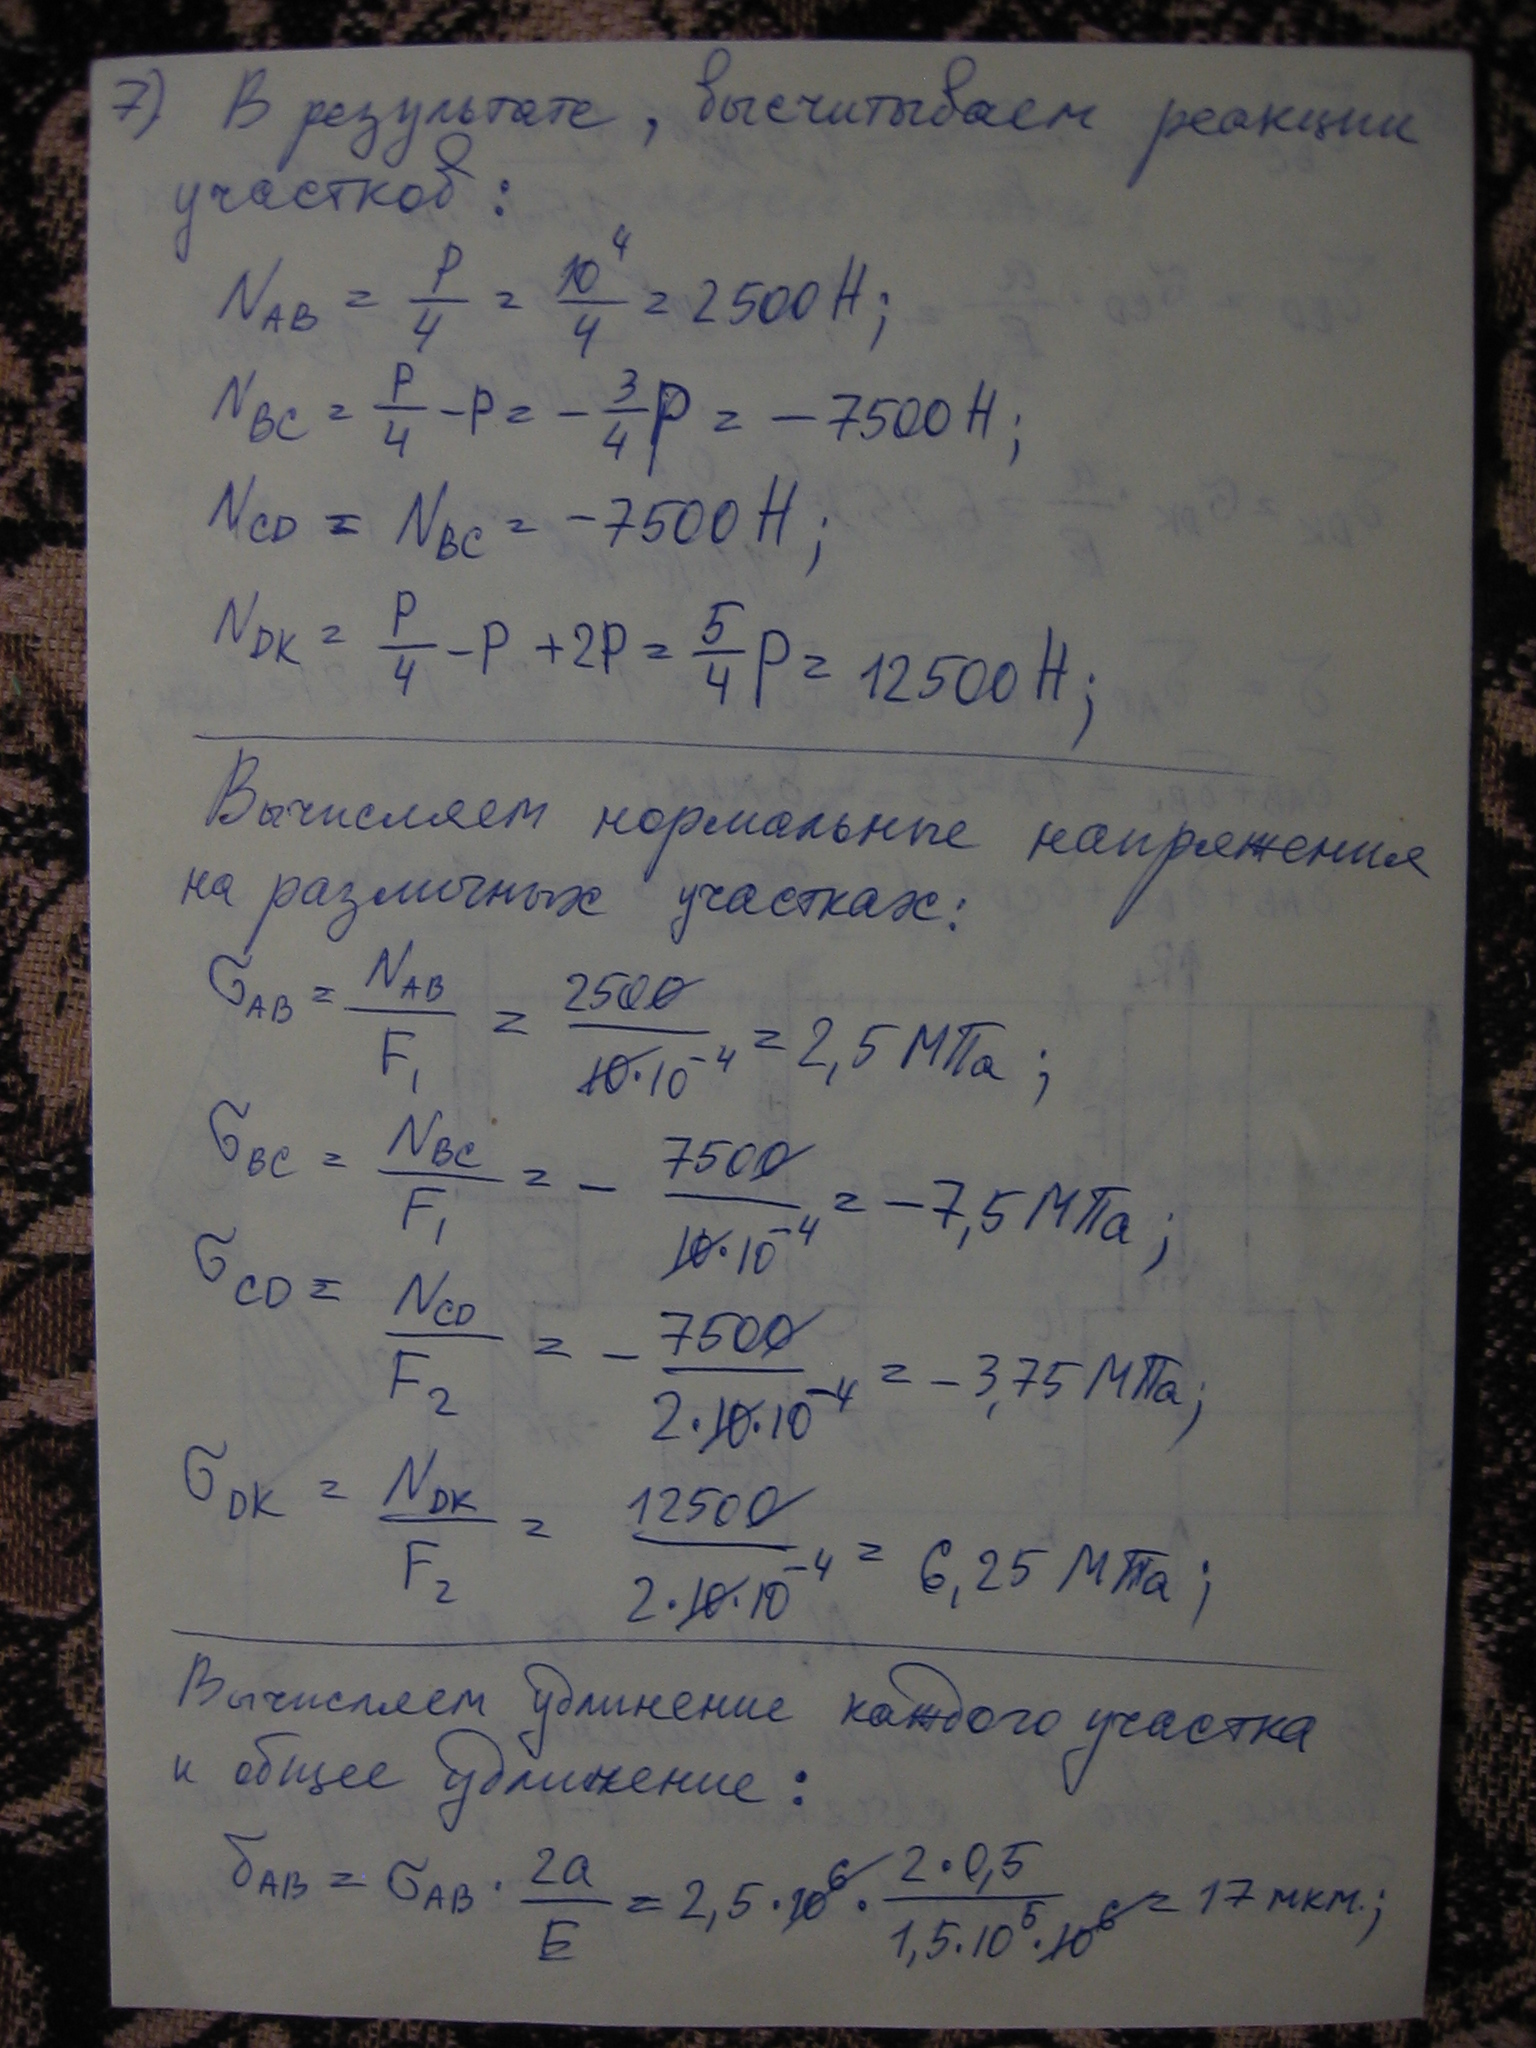 7) В результате, высчитываем реакции
участков:
N_AB = P/4 = 10^4/4 = 2500 Н;
N_BC = P/4 - P = - 3/4 P = - 7500 Н;
N_CD = N_BC = - 7500 Н;
N_DK = P/4 - P + 2P = 5/4 P = 12500 Н;
Вычисляем нормальные напряжения
на различных участках:
σ_AB = N_AB/F_1 = 2500/(10·10^-4) = 2,5 МПа;
σ_BC = N_BC/F_1 = - 7500/(10·10^-4) = - 7,5 МПа;
σ_CD = N_CD/F_2 = - 7500/(2·10·10^-4) = - 3,75 МПа;
σ_DK = N_DK/F_2 = 12500/(2·10·10^-4) = 6,25 МПа;
Вычисляем удлинение каждого участка
и общее удлинение:
δ_AB = σ_AB · 2a/E = 2,5·10^6 · (2·0,5)/(1,5·10^5·10^6) = 17 мкм.;